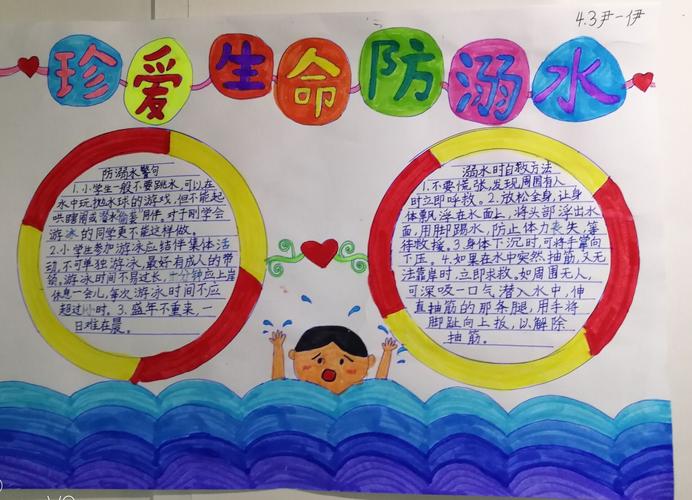 4.3尹一伊
珍爱生命防溺水
防溺水警句
1.小学生一般不要跳水,可以在
水中玩抛水球的游戏,但不能起
哄瞎闹或潜水偷袭同伴,对于刚学会
游泳的同学更不能这样做。
2.小学生参加游泳应结伴集体活
动,不可单独游泳,最好有成人的带
领。游泳时间不易过长,十分钟应上岸
休息一会儿,每次游泳时间不应
超过小时。3.盛年不重来,一
日难在晨。
溺水时自救方法
1.不要慌张,发现周围有人
时立即呼救。2.放松全身,让身
体飘浮在水面上,将头部浮出水
面,用脚踢水,防止体力丧失,等
待救援。3.身体下沉时,可将手掌向
下压。4.如果在水中突然抽筋,又无
法靠岸时,立即求救。如周围无人,
可深吸一口气潜入水中,伸
直抽筋的那条腿,用手将
脚趾向上扳,以解除
抽筋。